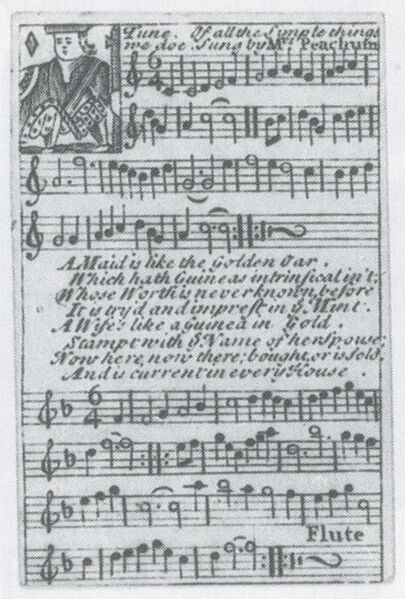 Tune. Of all the Simple things
we doe Sung by Mrs Peachum
6
4
A Maid is like the Golden Oar.
Which hath Guineas intrinsical in't;
Whose Worth is never known, before
It is try'd and imprest in ye Mint.
A Wife's like a guinea in Gold,
Stampt with ye Name of her Spouse;
Now here, now there; bought, or is sold;
And is current in every House.
6
4
Flute